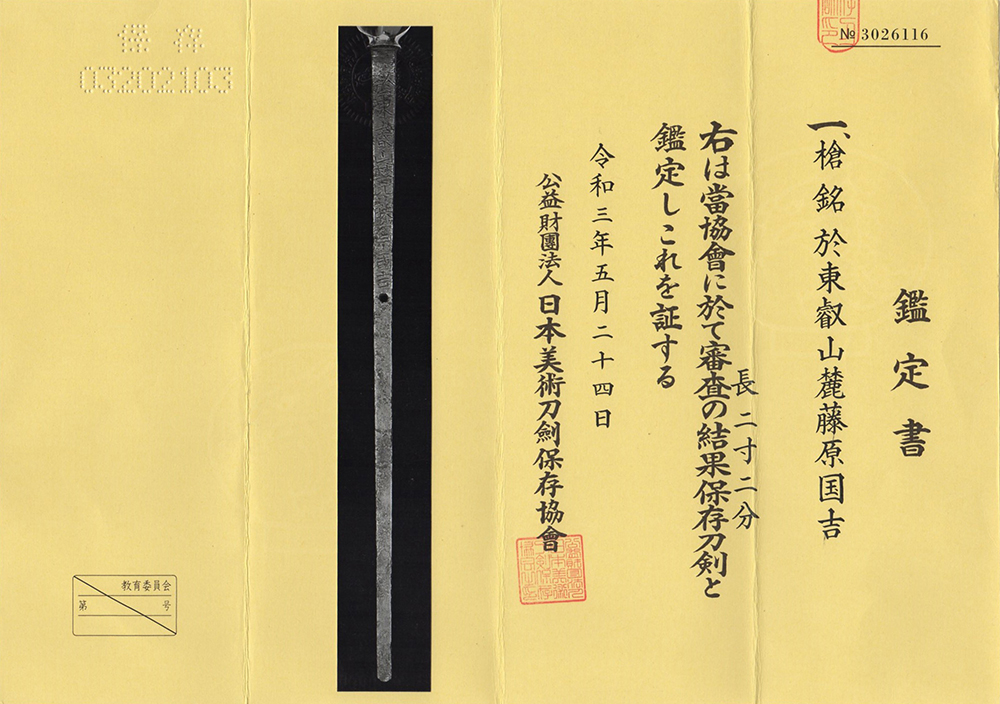 № 3026116
鑑定書
一、槍 銘 於東叡山麓藤原国吉
長 二寸二分
右は當協會に於て審査の結果保存刀剣と
鑑定しこれを証する
令和三年五月二十四日
公益財團法人 日本美術刀劍保存協會
保存
03202103
教育委員会
第 号